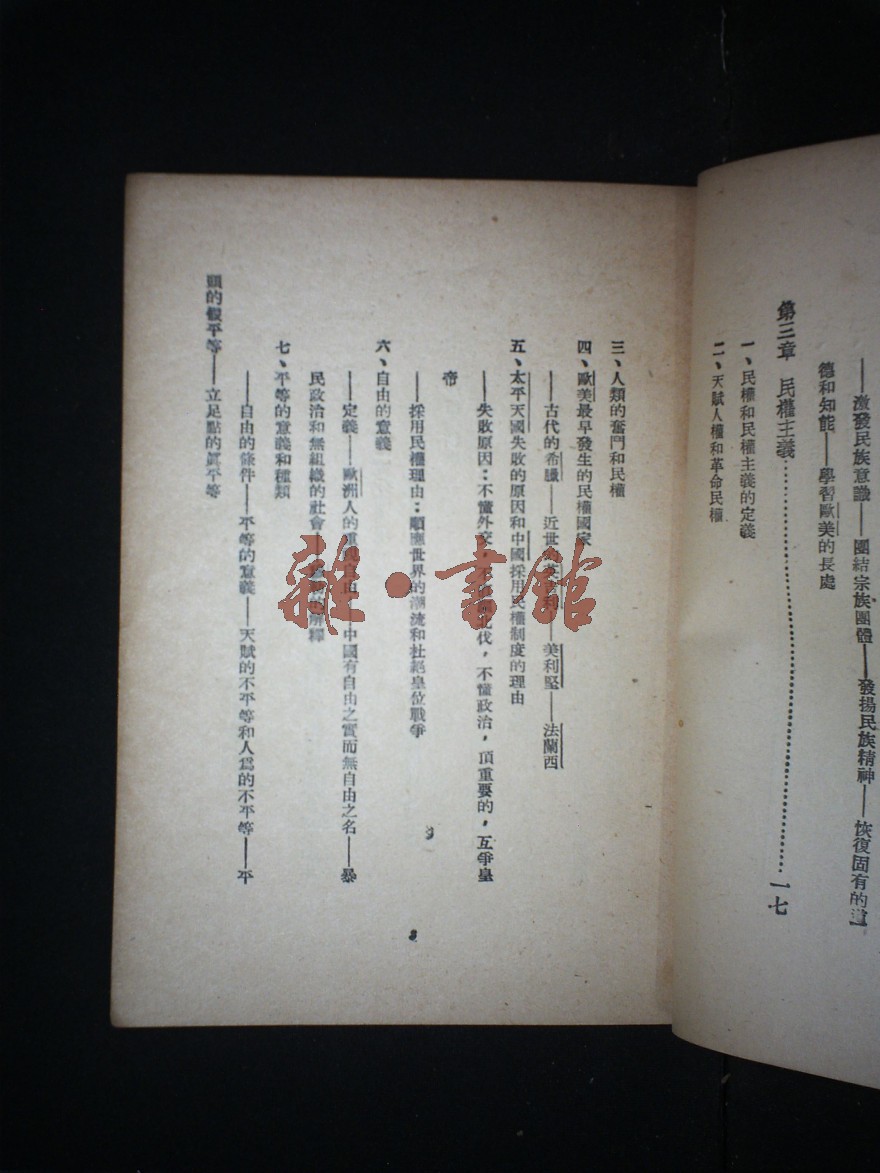 ——激發民族意識——團結宗族團體——發揚民族精神——恢復固有的道
德和知能——學習歐美的長處
第三章 民權主義……………………一七
一、民權和民權主義的定義
二、天賦人權和革命民權
三、人類的奮鬥和民權
四、歐美最早發生的民權國家
——古代的希臘——近世的英吉利——美利堅——法蘭西
五、太平天國失敗的原因和中國採用民權制度的理由
——失敗原因：不懂外交，不 北伐，不懂政治，頂重要的，互爭皇
帝
——採用民權理由：順應世界的潮流和杜絕皇位戰爭
六、自由的意義
——定義——歐洲人的重視自由——中國有自由之實而無自由之名——暴
民政治和無組織的社會—— 的解釋
七、平等的意義和種類
——自由的條件——平等的意義——天賦的不平等和人爲的不平等——平
頭的假平等——立足點的眞平等
3
雜·書館